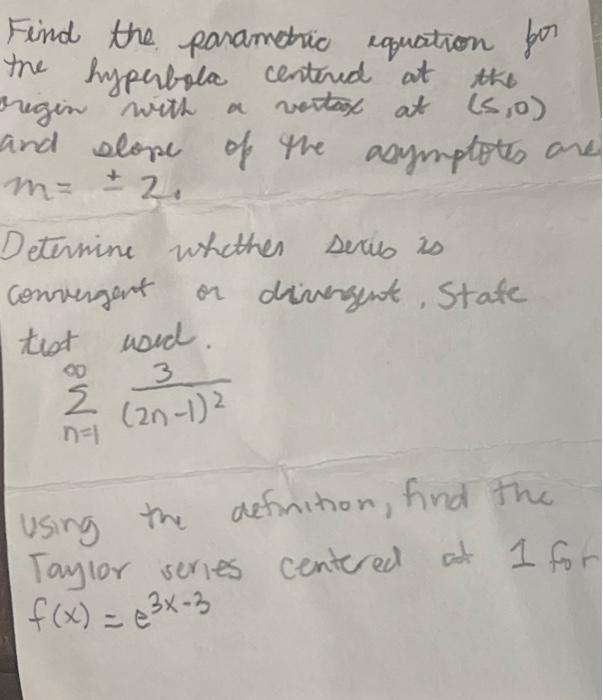 Find the parametric equation for
the hyperbola centered at the
origin with a vertex at (5,0)
and slope of the asymptotes are
m = ± 2.
Determine whether series is
convergent or divergent. State
test used.
∞
Σ 3/(2n-1)²
n=1
Using the definition, find the
Taylor series centered at 1 for
f(x) = e^{3x-3}